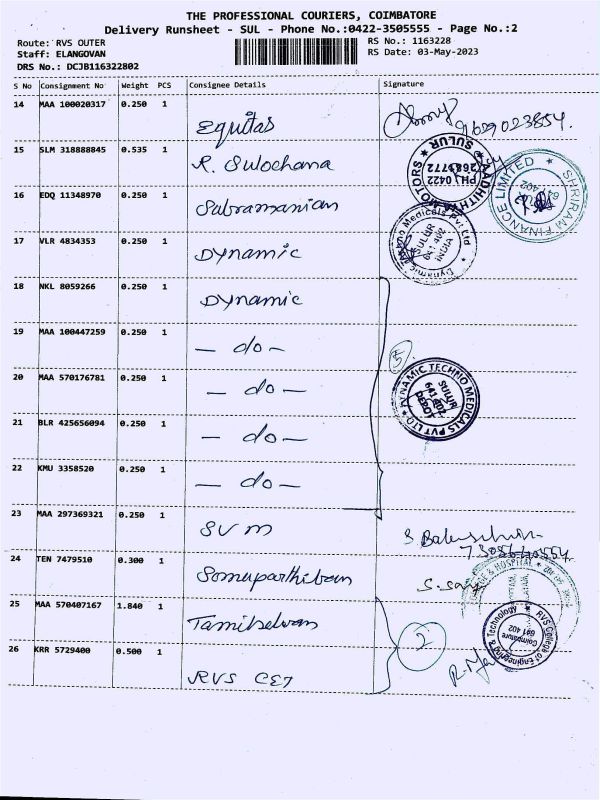 THE PROFESSIONAL COURIERS, COIMBATORE
Delivery Runsheet - SUL - Phone No.:0422-3505555 - Page No.:2
Route: RVS OUTER
RS No.: 1163228
Staff: ELANGOVAN
RS Date: 03-May-2023
DRS No.: DCJB116322802
S No Consignment No Weight PCS Consignee Details Signature
14 MAA 100020317 0.250 1 Equitas 9629023854.
15 SLM 318888845 0.535 1 R. Sulochana
AADHITHYA MOTORS ★ SULUR ★
PH: 0422
2689772
SHRIRAM FINANCE LIMITED ★
641 402
16 EDQ 11348970 0.250 1 Subramanian
17 VLR 4834353 0.250 1 Dynamic
Dynamic Techno Medicals Pvt Ltd
SULUR
641 402
INDIA
18 NKL 8059266 0.250 1 Dynamic
19 MAA 100447259 0.250 1 - do -
5
20 MAA 570176781 0.250 1 - do -
DYNAMIC TECHNO MEDICALS PVT LTD
SULUR
641 402
DEPOT
21 BLR 425656094 0.250 1 - do -
22 KMU 3358520 0.250 1 - do -
23 MAA 297369321 0.250 1 SVM
24 TEN 7479510 0.300 1 Somuparthiban
& HOSPITAL
25 MAA 570407167 1.840 1 Tamilselvan
2
RVS College of Engineering & Technology
Coimbatore
641 402
26 KRR 5729400 0.500 1 RVS CET